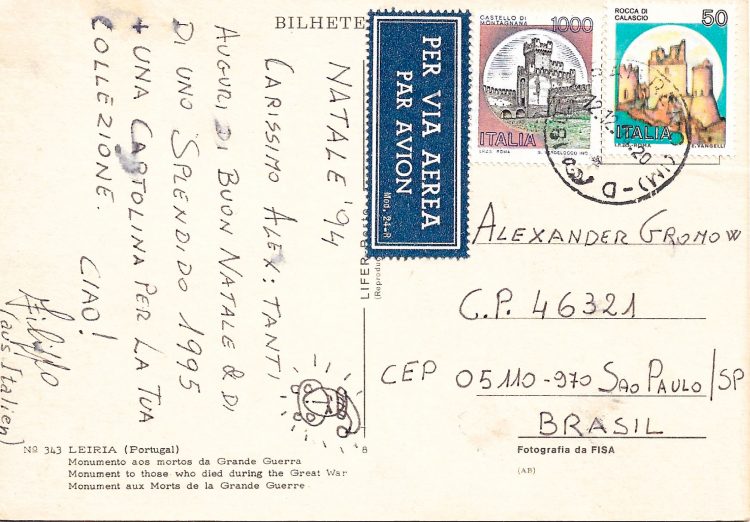 BILHETE
NATALE '94
CARISSIMO ALEX: TANTI
AUGURI DI BUON NATALE & DI
DI UNO SPLENDIDO 1995
+ UNA CARTOLINA PER LA TUA
COLLEZIONE.
CIAO!
Filippo
(aus Italien)
Nº 343 LEIRIA (Portugal)
Monumento aos mortos da Grande Guerra
Monument to those who died during the Great War
Monument aux Morts de la Grande Guerre
PER VIA AEREA
PAR AVION
Mod. 24-R
LIFER
(Reprodu
8
CASTELLO DI
MONTAGNANA
1000
ITALIA
I.P.Z.S. ROMA
ROCCA DI
CALASCIO
50
ITALIA
I.P.Z.S. ROMA
E. VANGELLI
ALEXANDER GROMOW
C.P. 46321
CEP 05110-970 SAO PAULO/SP
BRASIL
Fotografia da FISA
(AB)